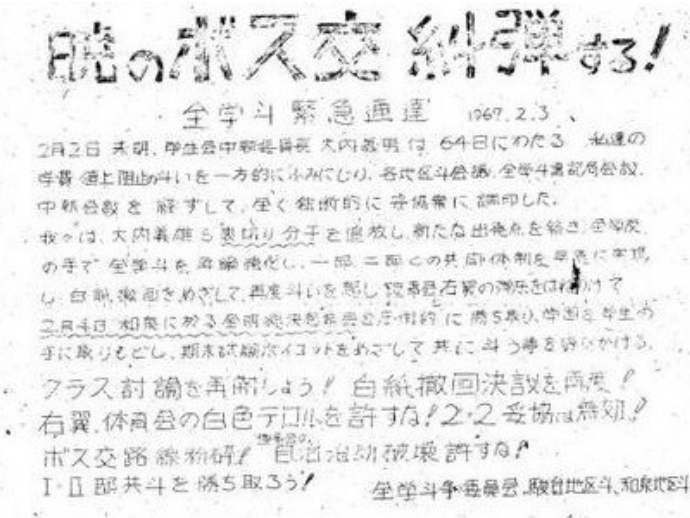 暁のボス交糾弾する!
全学斗緊急通達 1967.2.3
2月2日未明、学生会中執委員長大内義男は64日にわたる 私達の
学費値上阻止の斗いを一方的にふみにじり、各地区斗会議、全学斗書記局会議、
中執会議を経ずして、全く独断的に妥協案に調印した。
我々は、大内義雄ら裏切り分子を追放し、新たな出発点を
の手で全学斗を再編強化し、一部、二部の共同体制を早急に実現
し、白紙撤回をめざして、再度斗いを 右翼の をはねのけて
2月4日和泉に於る に勝ち取り、学園を学生の
手に取りもどし、期末試験ボイコットをめざして共に斗う事を呼びかける。
クラス討論を再開しよう! 白紙撤回決議を再度!
右翼、体育会の白色テロルを許すな! 2・2妥協は無効!
ボス交路線粉砕! 自治活動破壊許すな!
I・II部共斗を勝ち取ろう! 全学斗争委員会、駿台地区斗、和泉地区斗